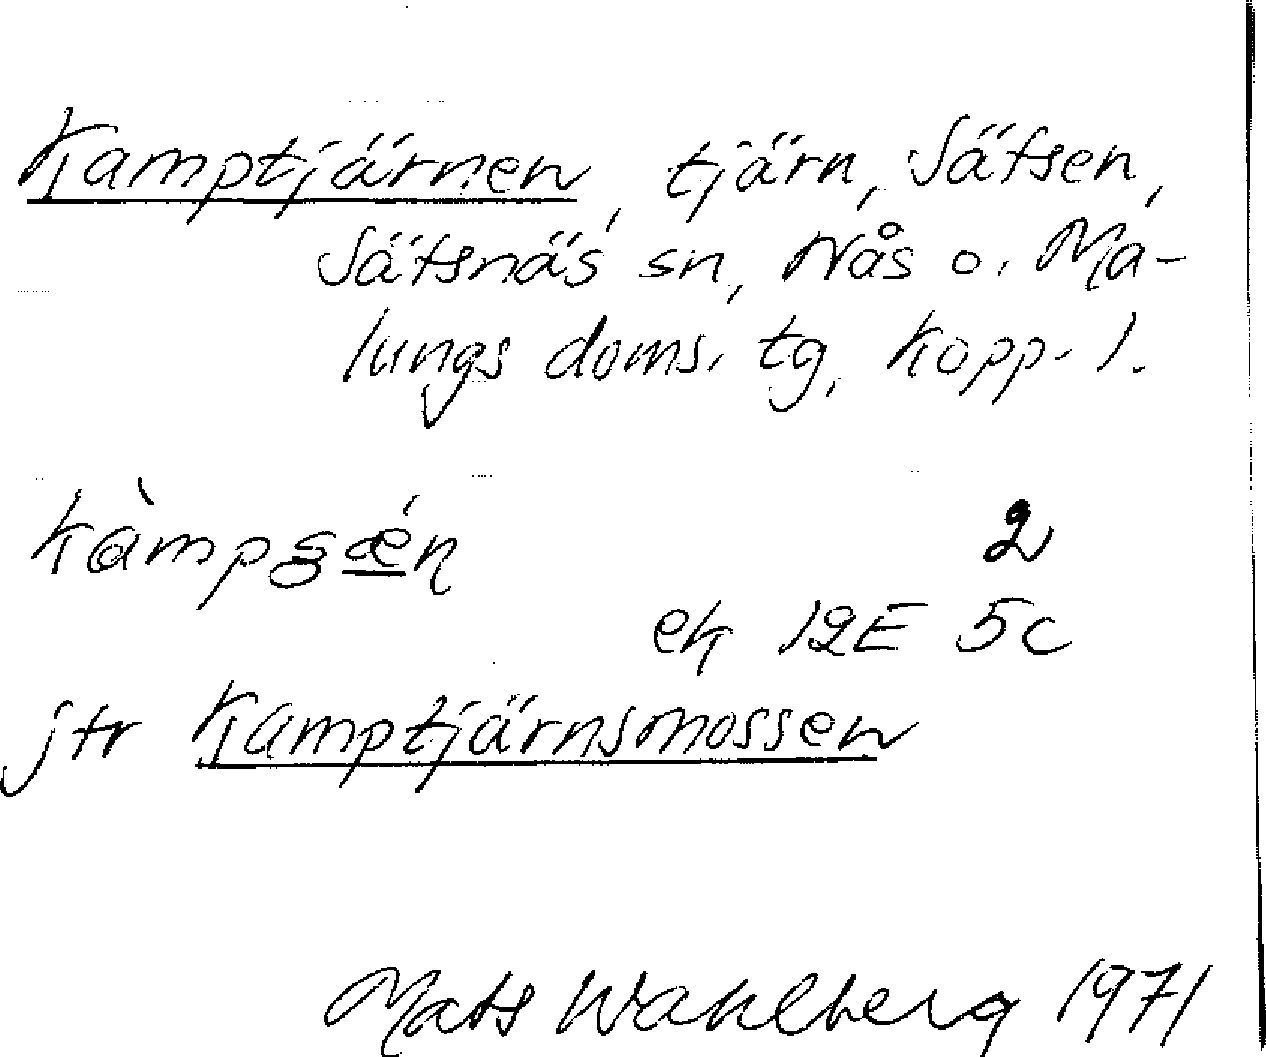 Kamptjärnen, tjärn, Sätsen,
Sätsnäs sn, Nås o. Ma-
lungs doms. tg, Kopp. l.
2
ek 12E 5c
jfr Kamptjärnsmossen
Mats Wahlberg 1971